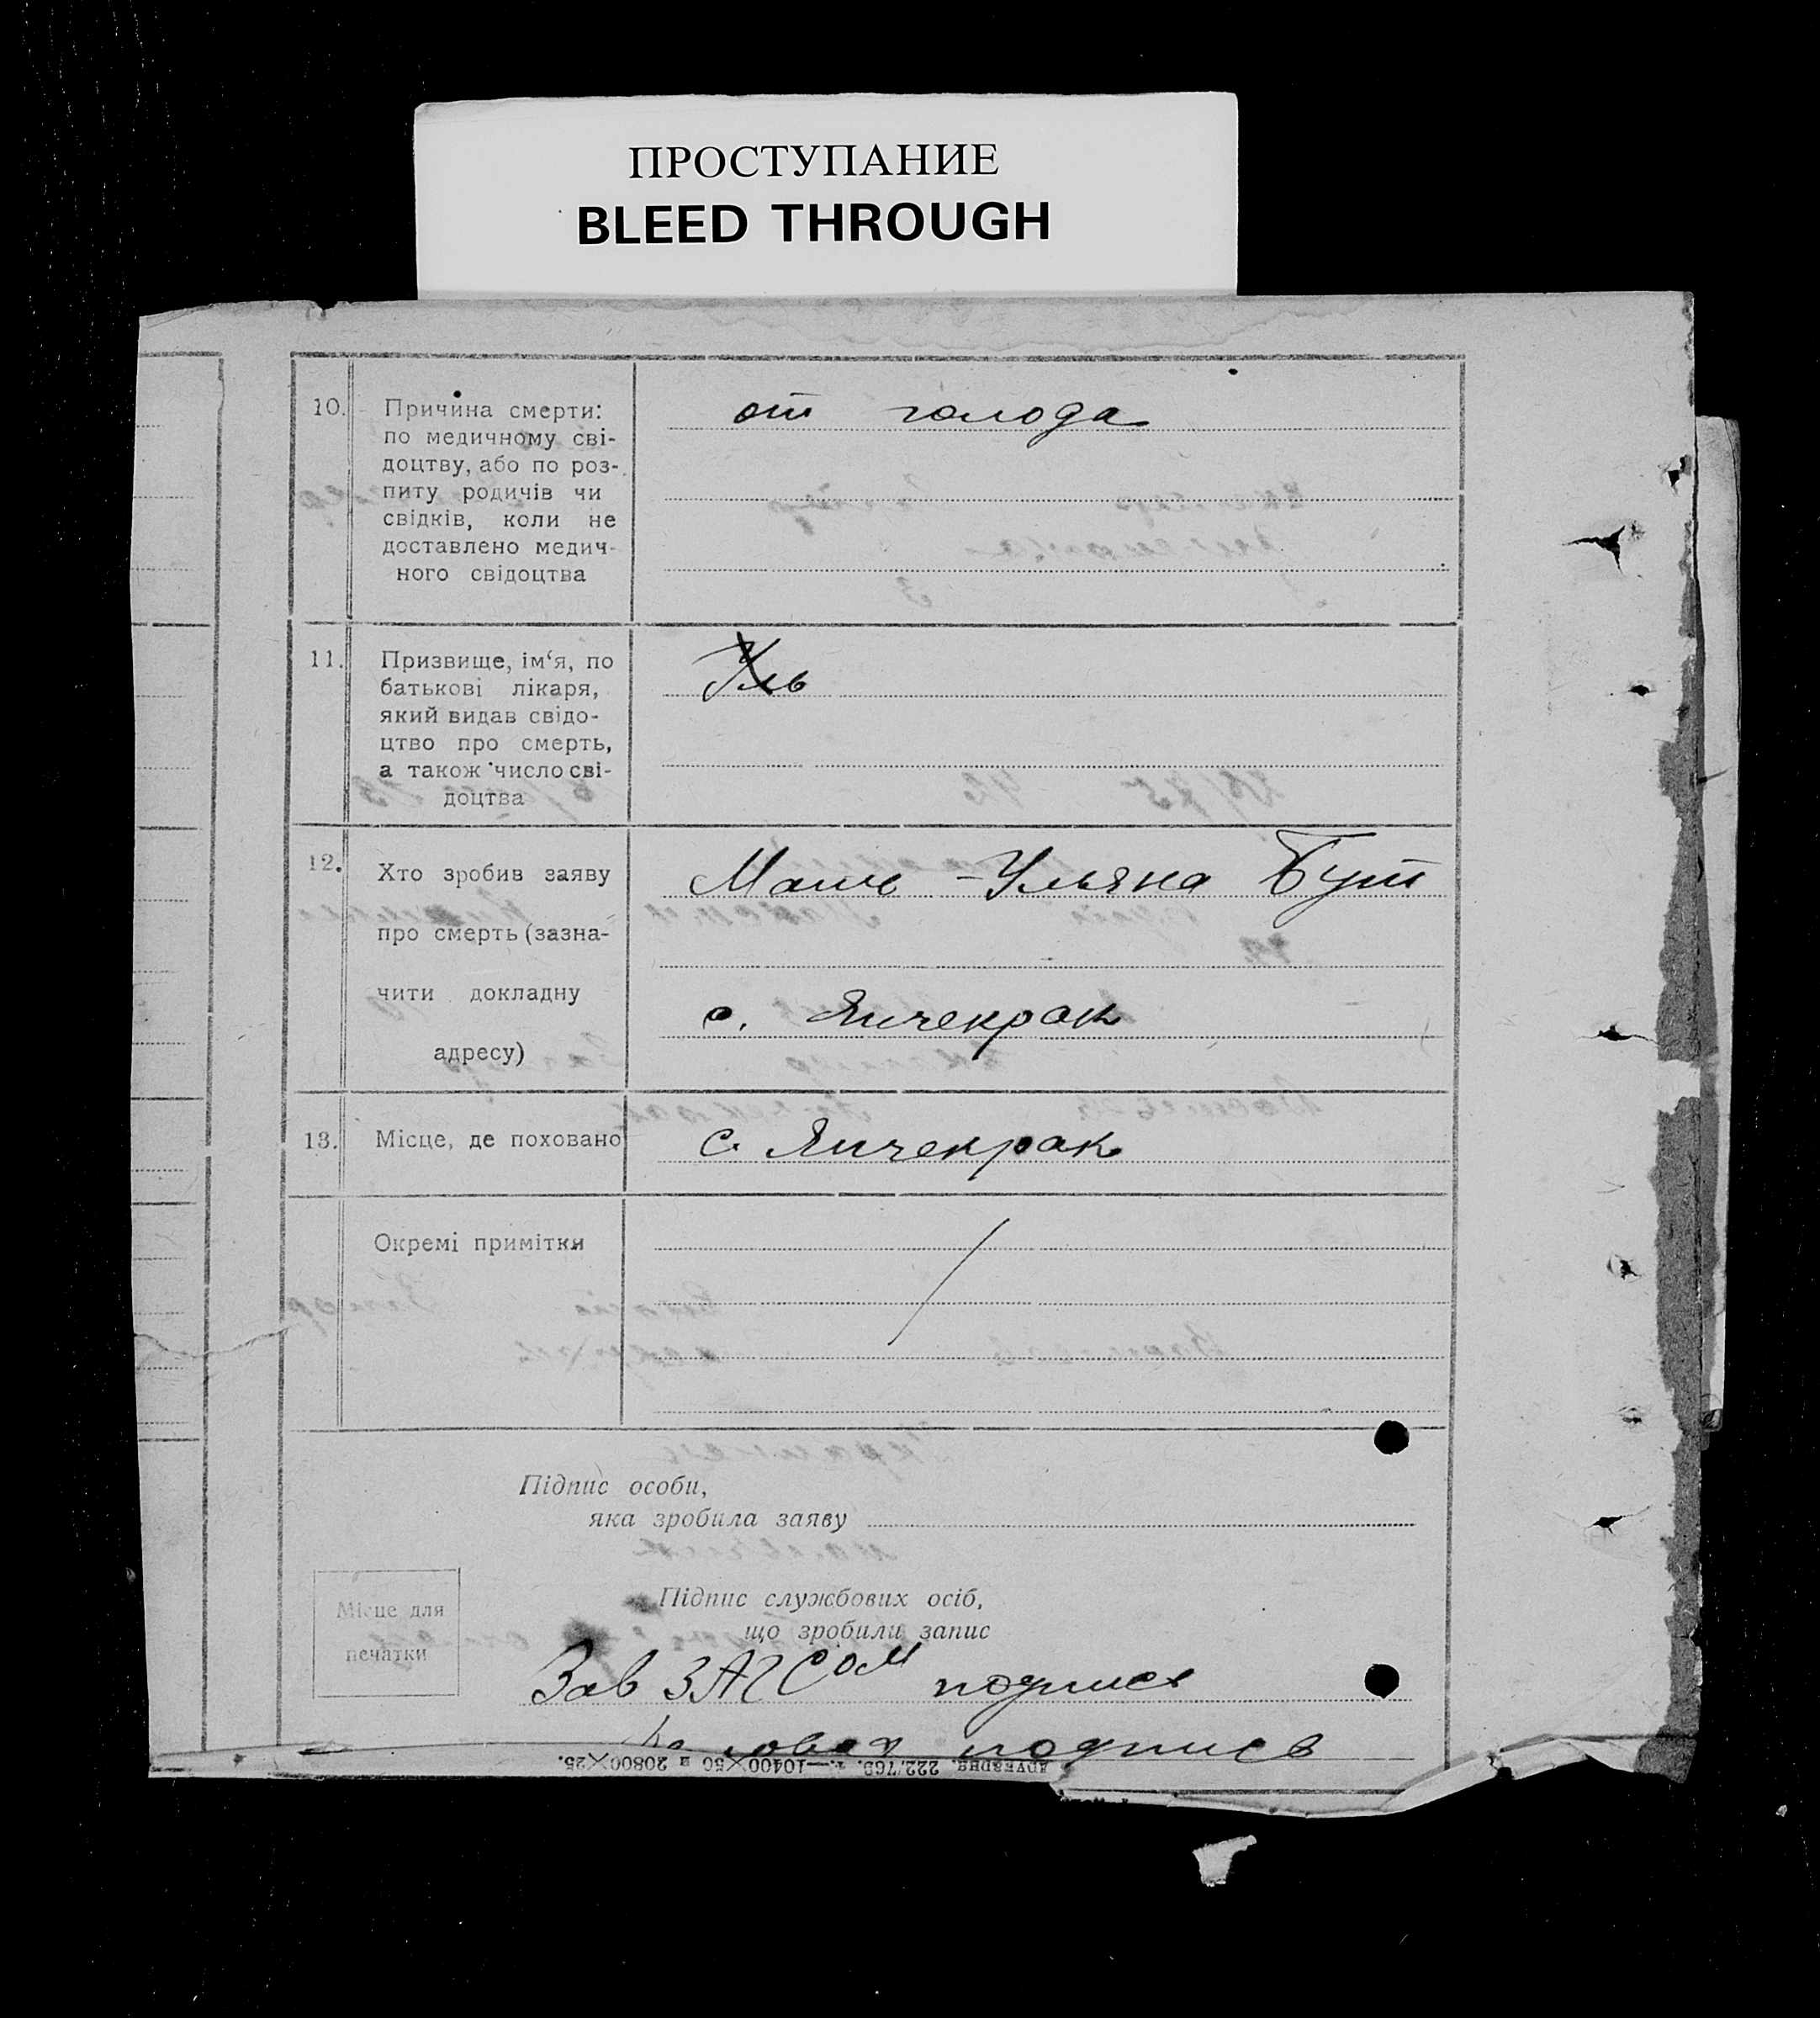 ПРОСТУПАНИЕ
BLEED THROUGH
10. Причина смерти: от голода
по медичному сві-
доцтву, або по роз-
питу родичів чи
свідків, коли не
доставлено медич-
ного свідоцтва
11. Призвище, ім‘я, по
батькові лікаря,
який видав свідо-
цтво про смерть,
а також число сві-
доцтва
12. Хто зробив заяву Мать - Ульяна Бут
про смерть (зазна-
чити докладну с. Янчекрак
адресу)
13. Місце, де поховано с. Янчекрак
Окремі примітки
Підпис особи,
яка зробила заяву
Місце для
печатки
Підпис службових осіб,
що зробили запис
Зав ЗАГСом подпись
подпись
друкарня. 222/769. т.—10400×50 и 20800×25.